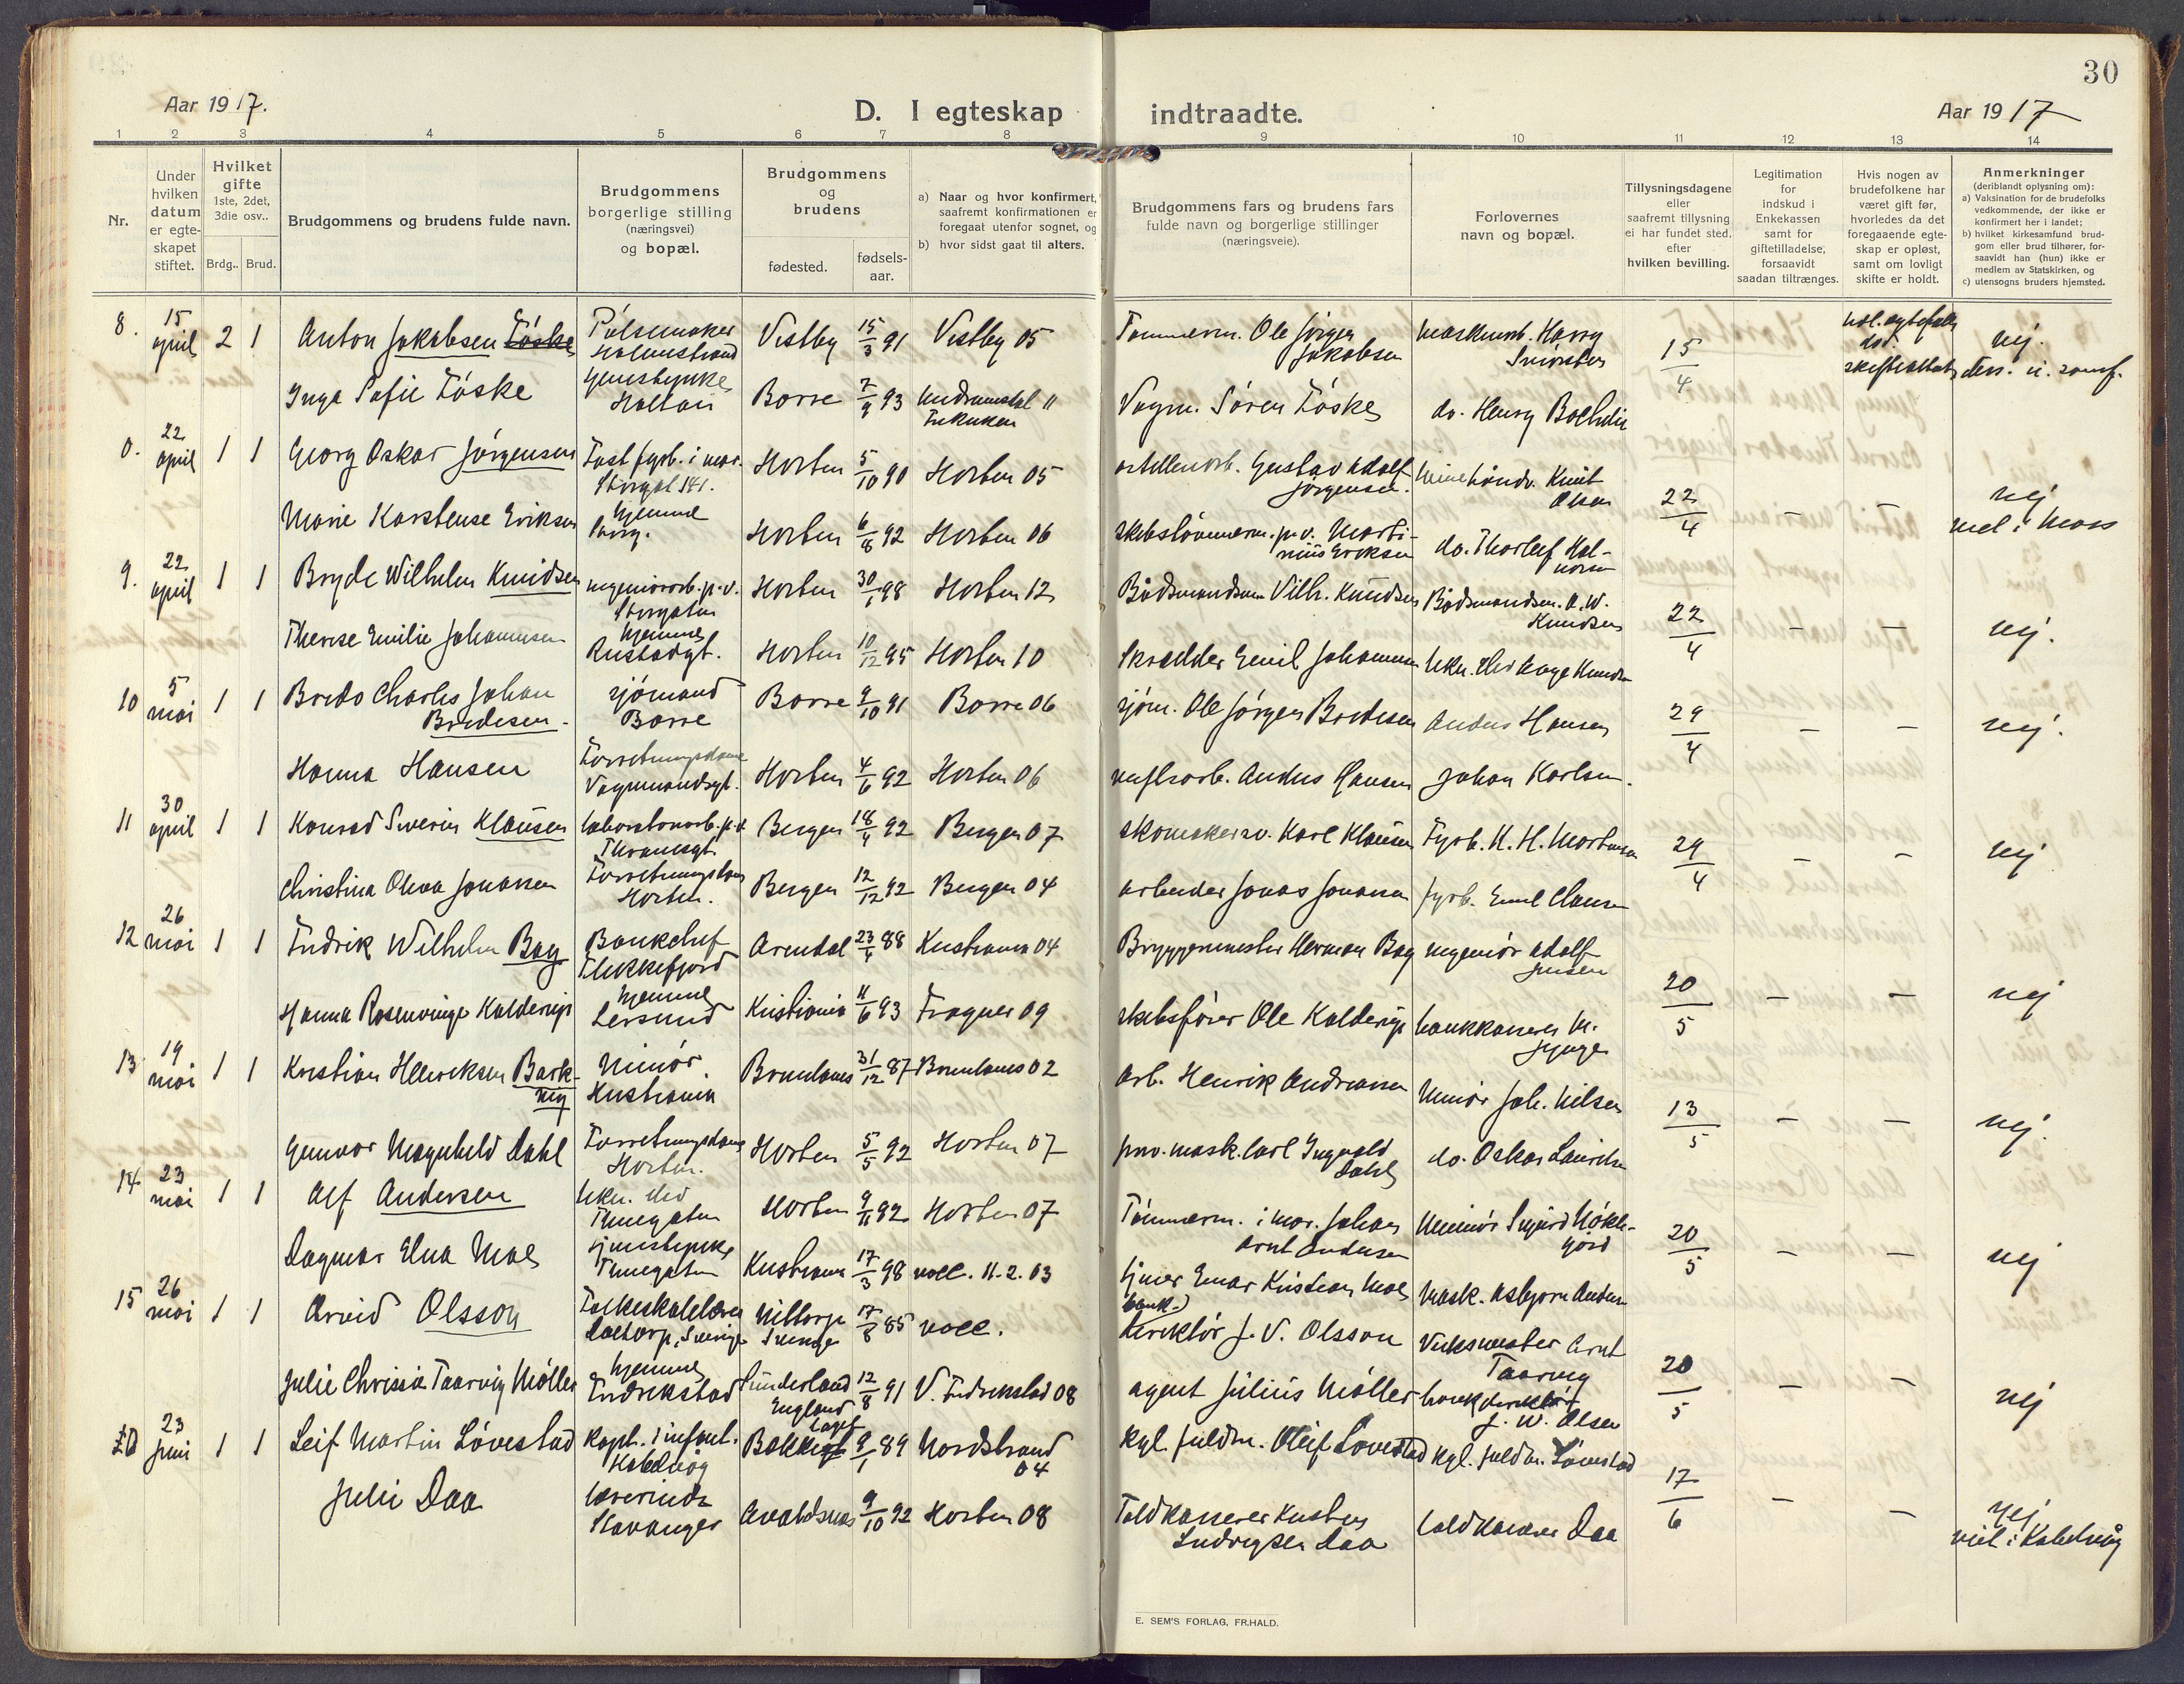 30
Aar 1917.
D. I egteskap indtraadte.
Aar 1917
1 2 3 4 5 6 7 8 9 10 11 12 13 14
Nr.
Under hvilken datum er egte-skapet stiftet.
Hvilket gifte 1ste, 2det, 3die osv..
Brdg.. Brud.
Brudgommens og brudens fulde navn.
Brudgommens borgerlige stilling (næringsvei) og bopæl.
Brudgommens og brudens
fødested.
fødsels-aar.
a) Naar og hvor konfirmert, saafremt konfirmationen er foregaat utenfor sognet, og
b) hvor sidst gaat til alters.
Brudgommens fars og brudens fars fulde navn og borgerlige stillinger (næringsveie).
Forlovernes navn og bopæl.
Tillysningsdagene eller saafremt tillysning ei har fundet sted, efter hvilken bevilling.
Legitimation for indskud i Enkekassen samt for giftetilladelse, forsaavidt saadan tiltrænges.
Hvis nogen av brudefolkene har været gift før, hvorledes da det foregaaende egte-skap er opløst, samt om lovligt skifte er holdt.
Anmerkninger
(deriblandt oplysning om):
a) Vaksination for de brudefolks vedkommende, der ikke er konfirmert her i landet;
b) hvilket kirkesamfund brud-gom eller brud tilhører, for-saavidt han (hun) ikke er medlem av Statskirken, og
c) utensogns bruders hjemsted.
8. 15 april 2 1 Anton Jakobsen Töske Pølsemaker Holmestrand Vestby 15/3 91 Vestby 05 Tømmerm. Ole Jörgen Jakobsen 15/4 nej.
Inga Sofie Töske Holtan Borre 7/9 93 Vognm. Sören Töske do. Henry
0. 22 april 1 1 Georg Oskar Jörgensen Storgt 141. Horten 5/10 90 Horten 05 Gustav Adolf Jörgensen. Knut Olsen 22/4 - - nej
Marie Karstense Eriksen hjemme Storg. Horten 6/8 92 Horten 06 skibstömmerm. p.v. Martinius Eriksen do. Thorleif Halvorsen
9. 22 april 1 1 Bryde Wilhelm Knudsen Storgaten Horten 30/1 98 Horten 12 Bådsmandsm. Vilh. Knudsen Bådsmandsm. A. W. Knudsen 22/4 - - nej.
Therese Emilie Johannesen hjemme Rustadgt. Horten 10/12 95 Horten 10 Skrædder Emil Johannesen Aage Knudsen
10 5 mai 1 1 Bredo Charles Johan Bredesen. sjömand Borre Borre 9/10 91 Borre 06 sjöm. Ole Jörgen Bredesen Anders Hansen 29/4 - - nej.
Hanna Hansen Forretningsdame Vognmandsgt. Horten 4/6 92 Horten 06 Anders Hansen Johan Karlsen.
11 30 april 1 1 Konrad Severin Klausen Thranesgt. Bergen 18/4 92 Bergen 07 skomakersv. Karl Klausen Fyrb. K. H. Mortensen 29/4 - - nej
Christina Olava Jonassen Forretningsdame Horten. Bergen 12/12 92 Bergen 04 arbeider Jonas Jonassen fyrb. Emil Clausen
12 26 mai 1 1 Fredrik Wilhelm Bay Bankchef Flekkefjord Arendal 23/4 88 Kristiania 04 Bryggermester Herman Bay ingeniör Adolf Jensen 20/5 - - nej
Hanna Rosenvinge Kolderup hjemme Kristiania 11/6 93 Frogner 09 skibsförer Ole Kolderup bankkasserer
13. 19 mai 1 1 Kristian Henriksen Kristiania Brunlanes 31/12 87 Brunlanes 02 Arb. Henrik Andreassen Minör Joh. Nilsen 13/5 - - nej.
Gunvor Magnhild Dahl Forretningsdame Horten. Horten 5/5 92 Horten 07 mask. Carl Ingvald Dahl do. Oskar Lauritsen
14 23 mai 1 1 Alf Andersen Thuegaten Horten 9/11 92 Horten 07 Tömmerm. i mar. Johan Arnt Andersen Minör Sigurd 20/5 - - nej
Dagmar Elna Moe Thuegaten Kristiania 17/3 98 vacc. 11-2.03 Einar Kristian Moe Mask. Asbjørn Andersen
15 26 mai 1 1 Arvid Olsson Folkeskolelærer Sverige Sverige 17/8 85 vacc. bank-direktör J. V. Olsson Verksmester Arnt Taarvig 20/5 - - nej
Julie Chrissie Taarvig Möller hjemme Fredrikstad Sunderland England 12/8 91 V. Fredrikstad 08 agent Julius Möller bankdirektör J. W. Olsen
23 juni 1 1 Leif Martin Lövestad Kapt. i infant. 9/1 89 Nordstrand 04 Kgl. fuldm. Lövestad Kgl. fuldm. Lövestad 17/6 - - nej
Julie Daa lærerinde Stavanger Avaldsnes 9/10 92 Horten 08 Toldkasserer Kristen Ludvigsen Daa toldkasserer Daa
E. SEM'S FORLAG, FR.HALD.